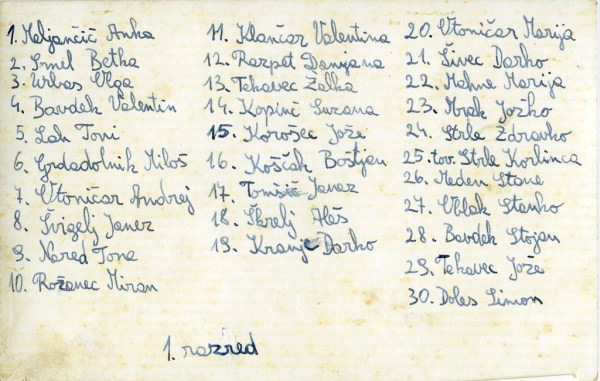 1. Meljančič Anka
2. Imel Betka
3. Urbas Olga
4. Bavdek Valentin
5. Lah Toni
6. Grdadolnik Miloš
7. Otoničar Andrej
8. Švigelj Janez
9. Nared Tone
10. Rožanec Miran
11. Klančar Valentina
12. Razpet Damjana
13. Tekavec Zalka
14. Kopinč Suzana
15. Korošec Jože
16. Koščak Boštjan
17. Tomšič Janez
18. Škrelj Aleš
19. Kranjc Darko
20. Otoničar Marija
21. Šivec Darko
22. Mahne Marija
23. Mrak Jožko
24. Strle Zdravko
25. tov. Strle Korlinca
26. Meden Stane
27. Oblak Stanko
28. Bavdek Stojan
29. Tekavec Jože
30. Doles Simon
1. razred